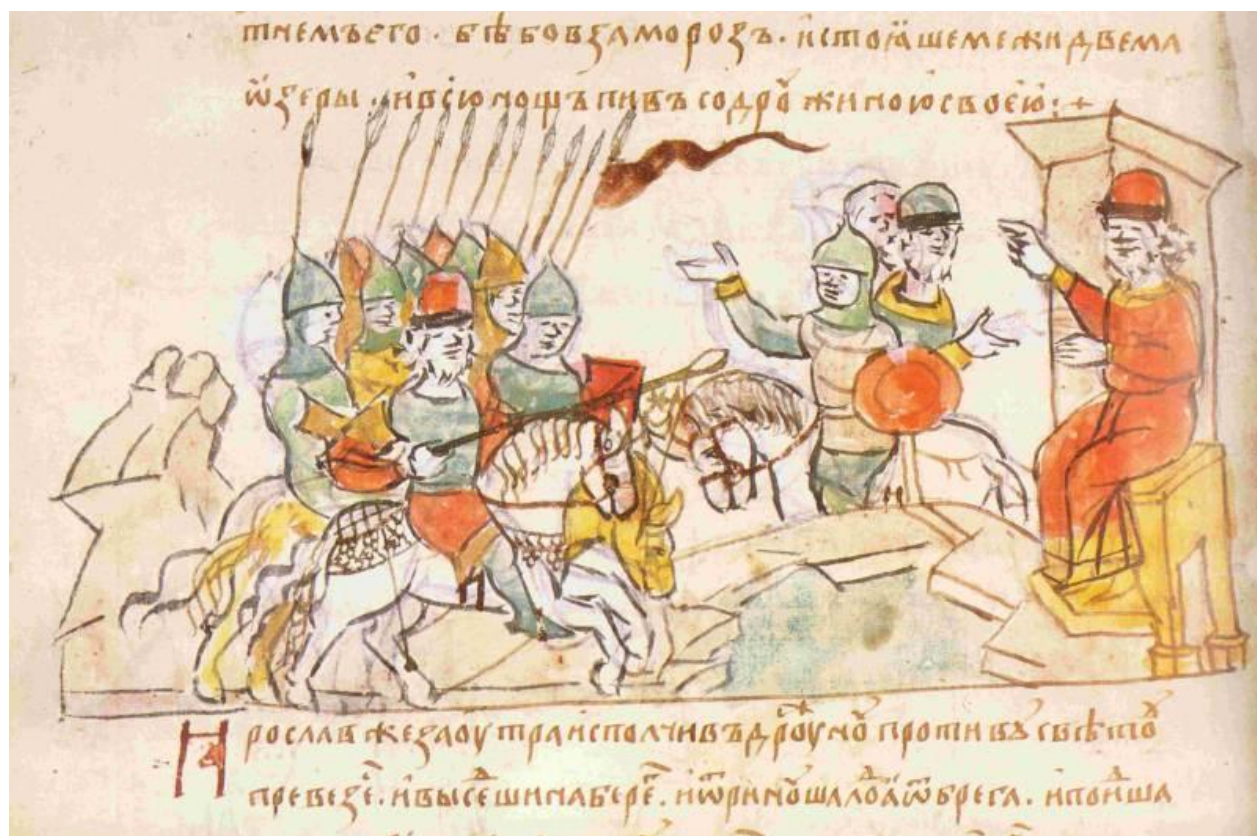 тнемъ его · бѣ бо в заморозъ · и стоꙗше межи двема
ѡзеры · и всю нощь пивъ со дрꙋжиною своею :+
Ꙗрослав же заоутра исполчивъ противꙋ свѣтꙋ
превезеⷭ · и высеⷣши на береⷢ · и ѿринꙋша лоⷣꙗ ѿ брега · и поиⷣша